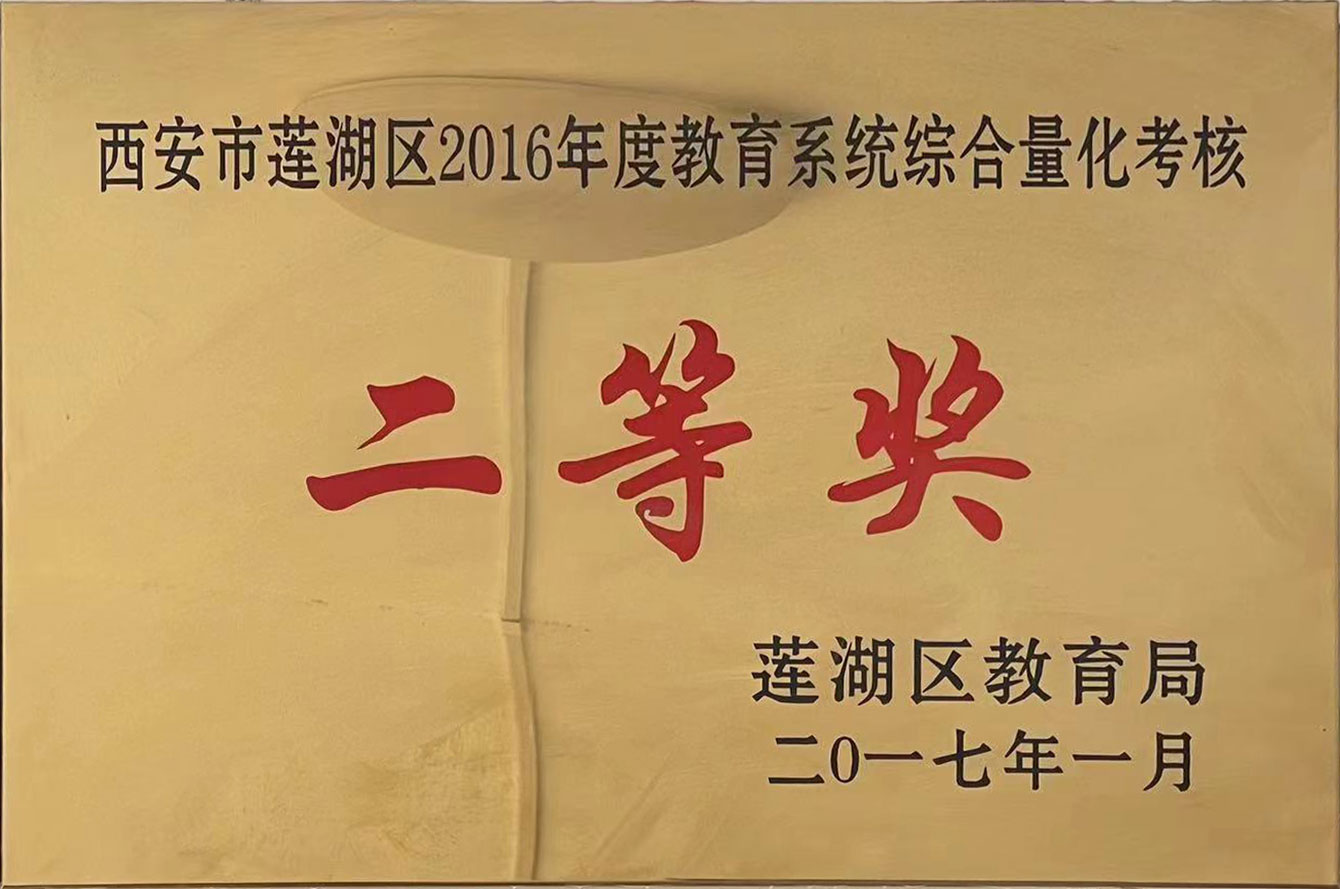 西安市莲湖区2016年度教育系统综合量化考核
二等奖
莲湖区教育局
二0一七年一月